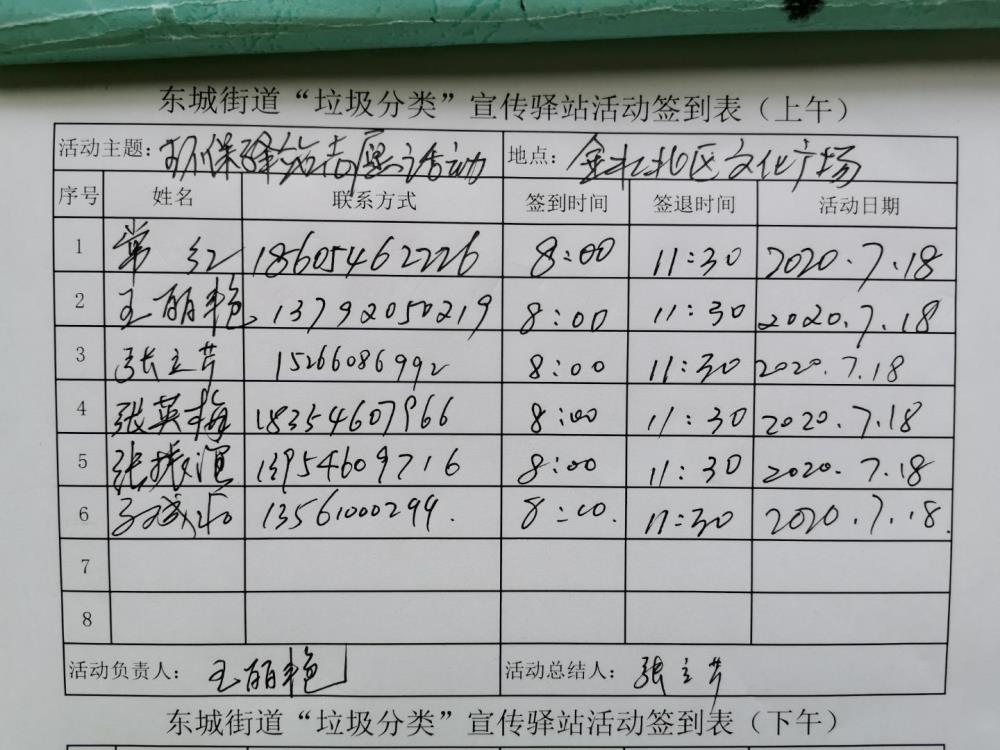 东城街道“垃圾分类”宣传驿站活动签到表（上午）
活动主题：环保 志愿 活动 地点：金 北区文化广场
序号 姓名 联系方式 签到时间 签退时间 活动日期
1 常红 18605462226 8:00 11:30 2020.7.18
2 王丽艳 13792050219 8:00 11:30 2020.7.18
3 张立芹 15266086992 8:00 11:30 2020.7.18
4 张英梅 18354607966 8:00 11:30 2020.7.18
5 张振 13954609716 8:00 11:30 2020.7.18
6 13561000299. 8:00. 11:30 2020.7.18.
7
8
活动负责人：王丽艳 活动总结人：张立芹
东城街道“垃圾分类”宣传驿站活动签到表（下午）